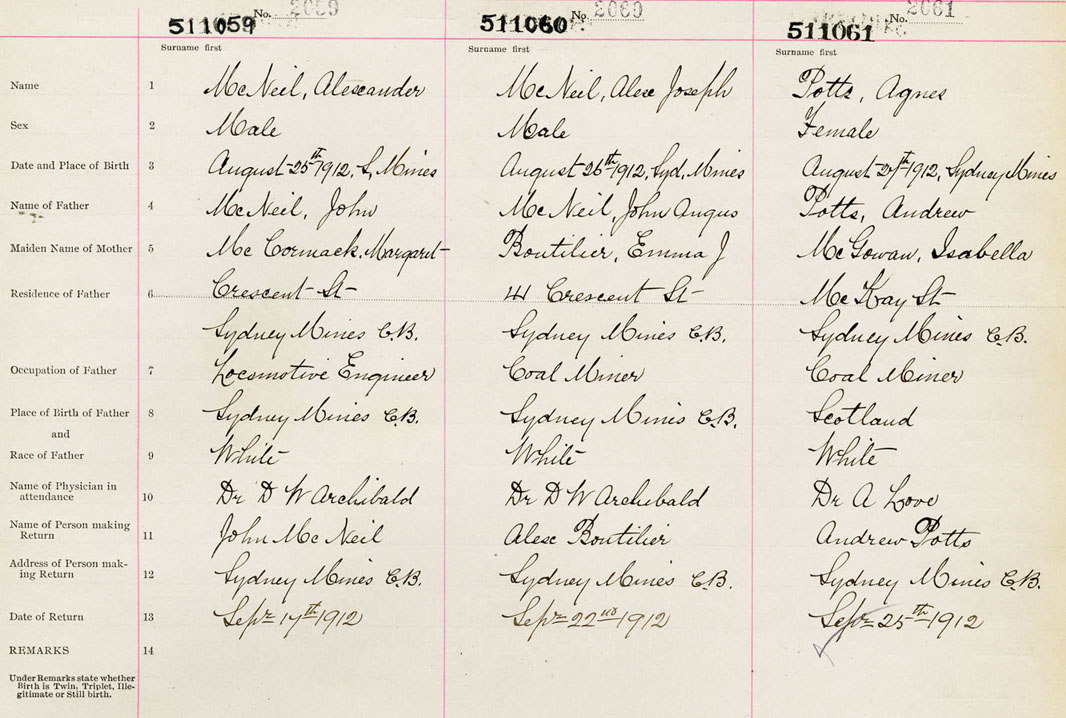 No. 2059
No. 2060
No. 2061
511059
511060
511061
Surname first
Surname first
Surname first
Name 1 McNeil, Alexander McNeil, Alex Joseph Potts, Agnes
Sex 2 Male Male Female
Date and Place of Birth 3 August 25th 1912, S, Mines August 26th 1912, Syd, Mines August 27th 1912, Sydney Mines
Name of Father 4 McNeil, John McNeil, John Angus Potts, Andrew
Maiden Name of Mother 5 McCormack, Margaret Boutilier, Emma J McGowan, Isabella
Residence of Father 6 Crescent St Crescent St McKay St
Sydney Mines C.B. Sydney Mines C.B. Sydney Mines C.B.
Occupation of Father 7 Locomotive Engineer Coal Miner Coal Miner
Place of Birth of Father 8 Sydney Mines C.B. Sydney Mines C.B. Scotland
and
Race of Father 9 White White White
Name of Physician in
attendance 10 Dr D W Archibald Dr D W Archibald Dr A Love
Name of Person making
Return 11 John McNeil Alex Boutilier Andrew Potts
Address of Person mak-
ing Return 12 Sydney Mines C.B. Sydney Mines C.B. Sydney Mines C.B.
Date of Return 13 Sepr 17th 1912 Sepr 22nd 1912 Sepr 25th 1912
REMARKS 14
Under Remarks state whether
Birth is Twin, Triplet, Ille-
gitimate or Still birth.